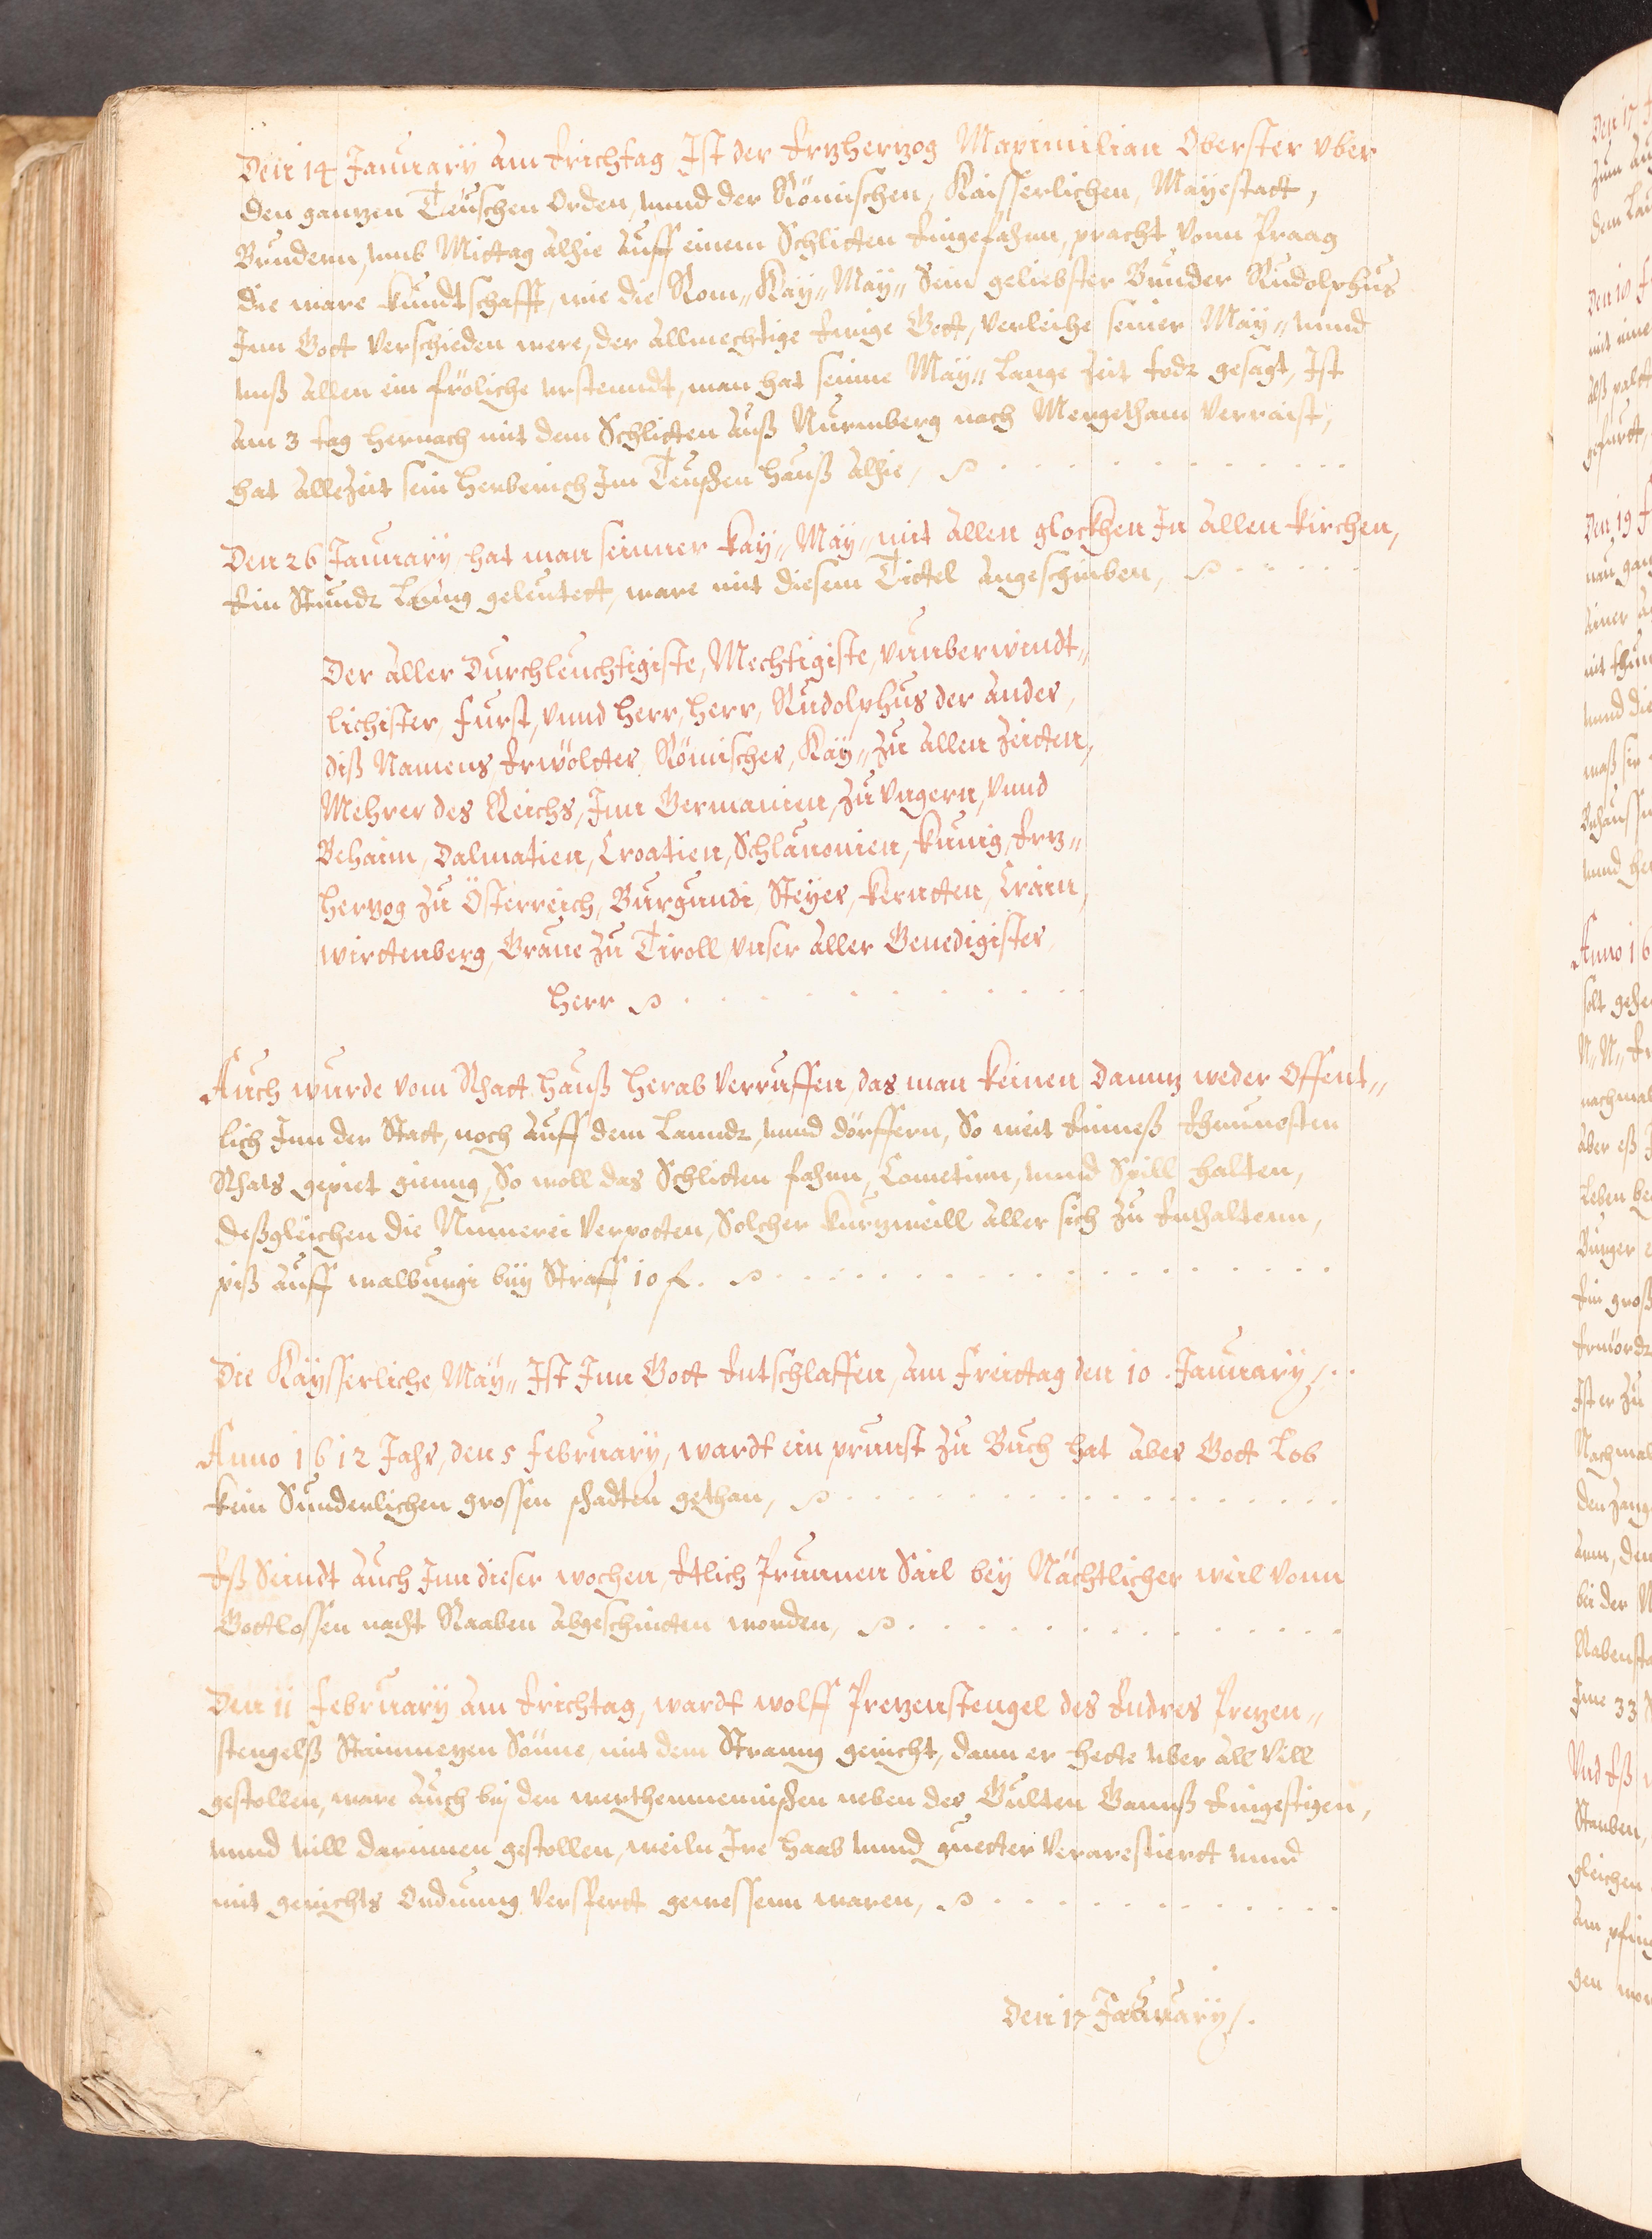 Den 14 January am Erichtag Ist der Erzherzog Maximilian Oberster vber
den ganzen Teuschen Orden, vnnd der Römischen, Kaisserlichen, Mayestatt,
Brudern, vmb Mittag alhie auff einem Schlitten Eingefahrn, pracht vonn Praag
die ware kundtschafft, wie die Rom„ Kay„ May„ Sein geliebster Bruder Rudolphus
Inn Gott verschieden were, der allmechtige Ewige Gott, verleihe seiner May„ vnnd
vnß allen ein fröliche vrstenndt, man hat seinne May„ lange zeit todt gesagt, Ist
am 3 tag hernach mit dem Schlitten auß Nurmberg nach Mergetham verraist,
hat allezeit sein herberich Im Teuschen hauß alhie,
Den 26 January hat man seinner kay„ May„ mit allen glockhen In allen kirchen,
Ein Stundt lanng geleutett, ware mit diesem Tittel angeschriben,
Der aller Durchleuchtigiste, Mechtigiste, vnuberwindt„
lichister, furst, vnnd herr, herr, Rudolphus der ander,
diß Namens, Erwölter Römischer, Kay„ zu allen zeitten,
Mehrer des Reichs, Inn Germanien, zu vngern, vnnd
Behaim, Dalmatien, Croatien, Schlauonien, kunig, Erz„
herzog zu Österreich, Burgundi, Steyer, kernten, Crain,
wirttenberg, Graue zu Tiroll vnser aller Genedigister
herr
Auch wurde vom Rhatt hauß herab verruffen, das man keinen Dannz weder Offent„
lich Inn der Statt, noch auff dem Lanndt, vnnd dörffern, So weit Einneß Ehrnuesten
Rhats gepiet gienng, So woll das Schlitten fahrn, Cometirn, vnnd Spill halten,
deßgleichen die Mumerei verpotten, Solcher kurzweill aller sich zu Enthaltenn,
piß auff walburgi bey Straff 10 f.
Die Kaysserliche May„ Ist Inn Gott Entschlaffen, am freittag den 10. January,
Anno 1612 Jahr, den 5 february, wardt ein prunst zu Buch hat aber Gott Lob
kein Sunderlichen grossen schadten gethan,
Eß Seindt auch Inn dieser wochen, Etlich Prunnen Sail bey Nächtlicher weil vonn
Gottlossen nacht Raaben abgeschnitten worden,
Den 11 february am Erichtag, wardt wolff Prezenstengel des Endres Prezen„
stengelß Stainmezen Sönne, mit dem Stranng gericht, dann er hette vber all vill
gestollen, ware auch bey den neben der Gulten Gannß Eingestigen,
vnnd vill darinnen gestollen, weiln Ire haab vnnd guetter verarestiertt vnnd
mit gerichts Ordnung versperrt gewessenn waren,
Den 17 January